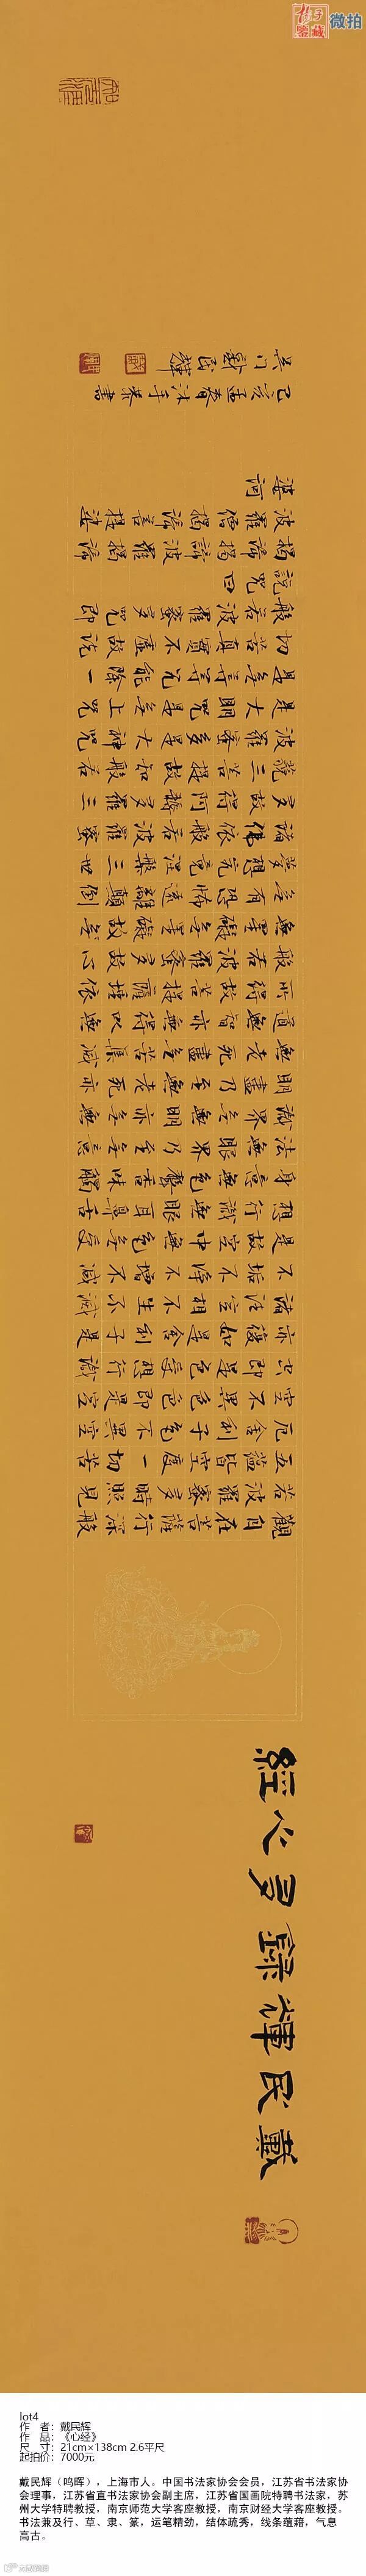 孔子鉴藏
微拍
戴民輝錄多心經
觀自在菩薩行深般
若波羅蜜多時照見
五蘊皆空度一切苦
厄舍利子色不異空
空不異色色即是空
空即是色受想行識
亦復如是舍利子是
諸法空相不生不滅
不垢不淨不增不減
是故空中無色無受
想行識無眼耳鼻舌
身意無色聲香味觸
法無眼界乃至無意
識界無無明亦無無
明盡乃至無老死亦
無老死盡無苦集滅
道無智亦無得以無
所得故菩提薩埵依
般若波羅蜜多故心
無罣礙無罣礙故無
有恐怖遠離顛倒
夢想究竟涅槃三世
諸佛依般若波羅蜜
多故得阿耨多羅三
藐三菩提故知般若
波羅蜜多是大神咒
是大明咒是無上咒
是無等等咒能除一
切苦真實不虛故說
般若波羅蜜多咒即
說咒曰
揭諦揭諦波羅揭諦
波羅僧揭諦菩提薩
婆訶
己亥孟春沐手恭書
吳門戴民輝
lot4
作 者：戴民辉
作 品：《心经》
尺 寸：21cm×138cm 2.6平尺
起拍价：7000元
戴民辉（鸣晖），上海市人。中国书法家协会会员，江苏省书法家协
会理事，江苏省直书法家协会副主席，江苏省国画院特聘书法家，苏
州大学特聘教授，南京师范大学客座教授，南京财经大学客座教授。
书法兼及行、草、隶、篆，运笔精劲，结体疏秀，线条蕴藉，气息
高古。